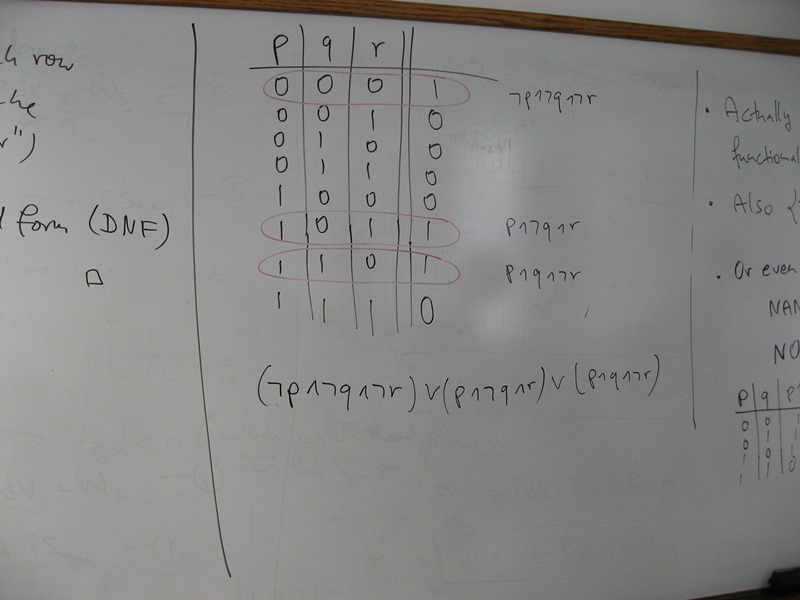 ch row
the
r")
d form (DNF)
□
p q r
0 0 0 1 ¬p∧¬q∧¬r
0 0 1 0
0 1 0 0
0 1 1 0
1 0 0 0
1 0 1 1 p∧¬q∧r
1 1 0 1 p∧q∧¬r
1 1 1 0
(¬p∧¬q∧¬r)∨(p∧¬q∧r)∨(p∧q∧¬r)
• Actually
functional
• Also {
• Or even
NAN
NO
p q p
0 0 1
0 1 1
1 0 1
1 1 0